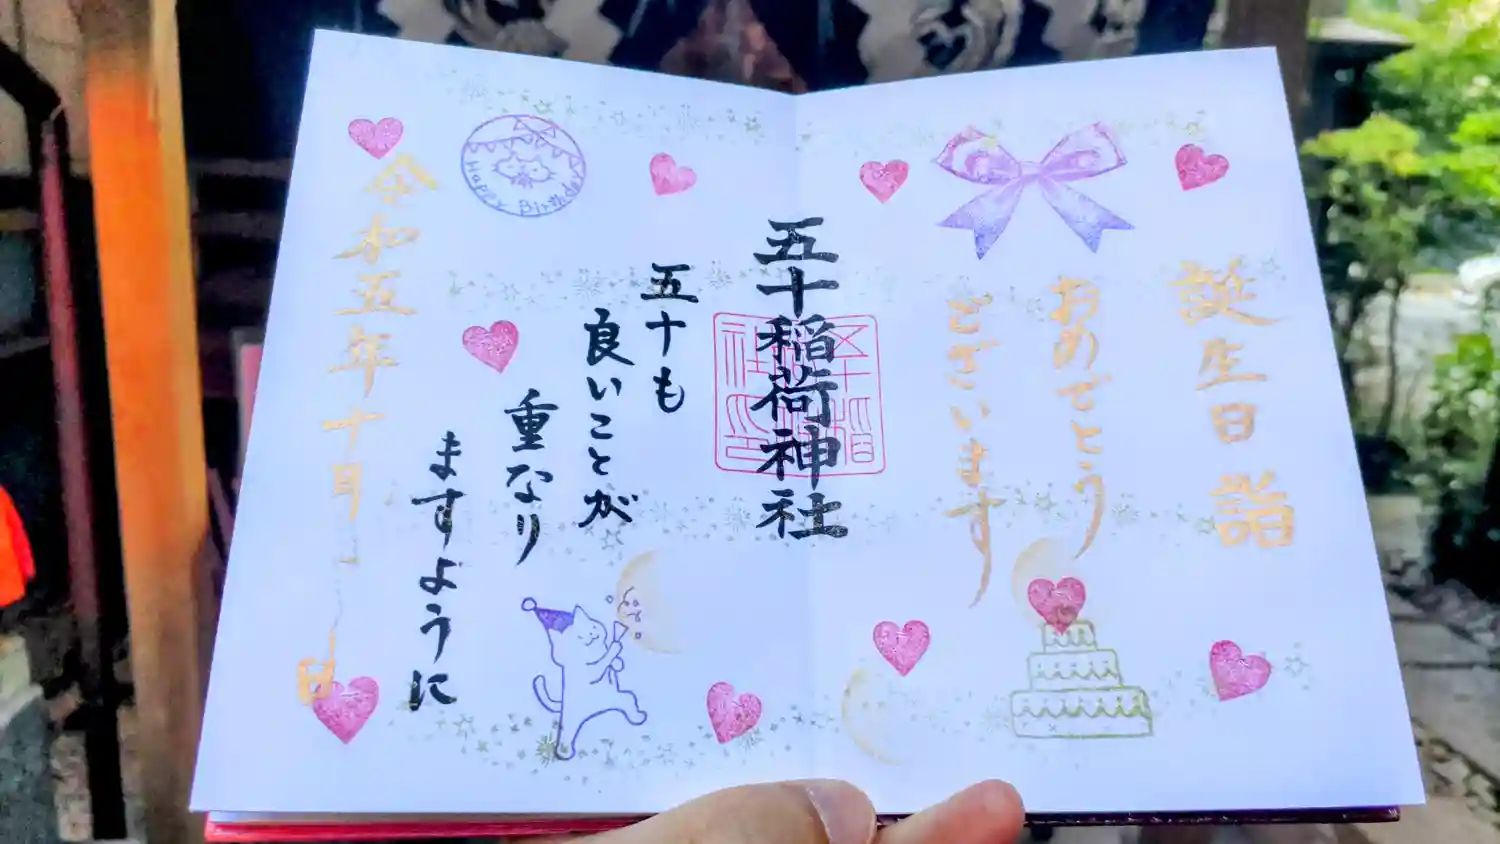 誕生日詣
おめでとう
ございます
五十稲荷神社
五十も
良いことが
重なり
ますように
令和五年十月
日
Happy Birthday